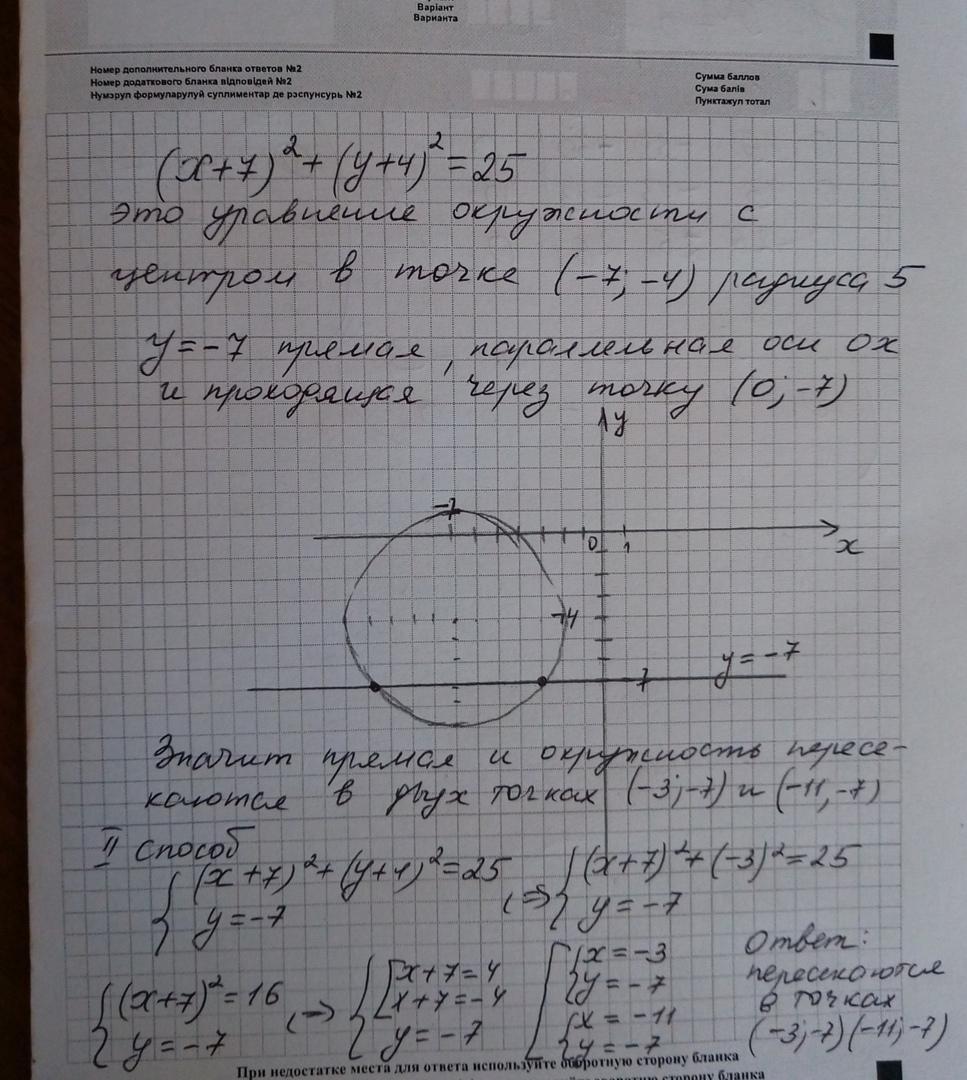 Варіант
Варианта
Номер дополнительного бланка ответов №2
Номер додаткового бланка відповідей №2
Нумэрул формуларулуй суплиментар де рэспунсурь №2
Сумма баллов
Сума балів
Пунктажул тотал
(x+7)²+(y+4)²=25
это уравнение окружности с
центром в точке (-7; -4) радиуса 5
y=-7 прямая, параллельная оси ox
и проходящая через точку (0; -7)
y
-7
0 1
x
-4
y=-7
-7
Значит прямая и окружность пересе-
каются в двух точках (-3;-7) и (-11;-7)
II способ
{ (x+7)²+(y+4)²=25
y=-7
<=> { (x+7)²+(-3)²=25
y=-7
{ (x+7)²=16
y=-7
<=> { [ x+7=4
x+7=-4
y=-7
[ { x=-3
y=-7
{ x=-11
y=-7
Ответ:
пересекаются
в точках
(-3;-7) (-11;-7)
При недостатке места для ответа используйте оборотную сторону бланка